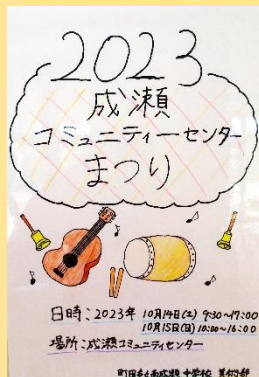 2023
成瀬
コミュニティーセンター
まつり
日時：2023年 10月14日(土) 9:30~17:00
10月15日(日) 10:00~16:00
場所：成瀬コミュニティーセンター
町田市立南成瀬中学校 美術部